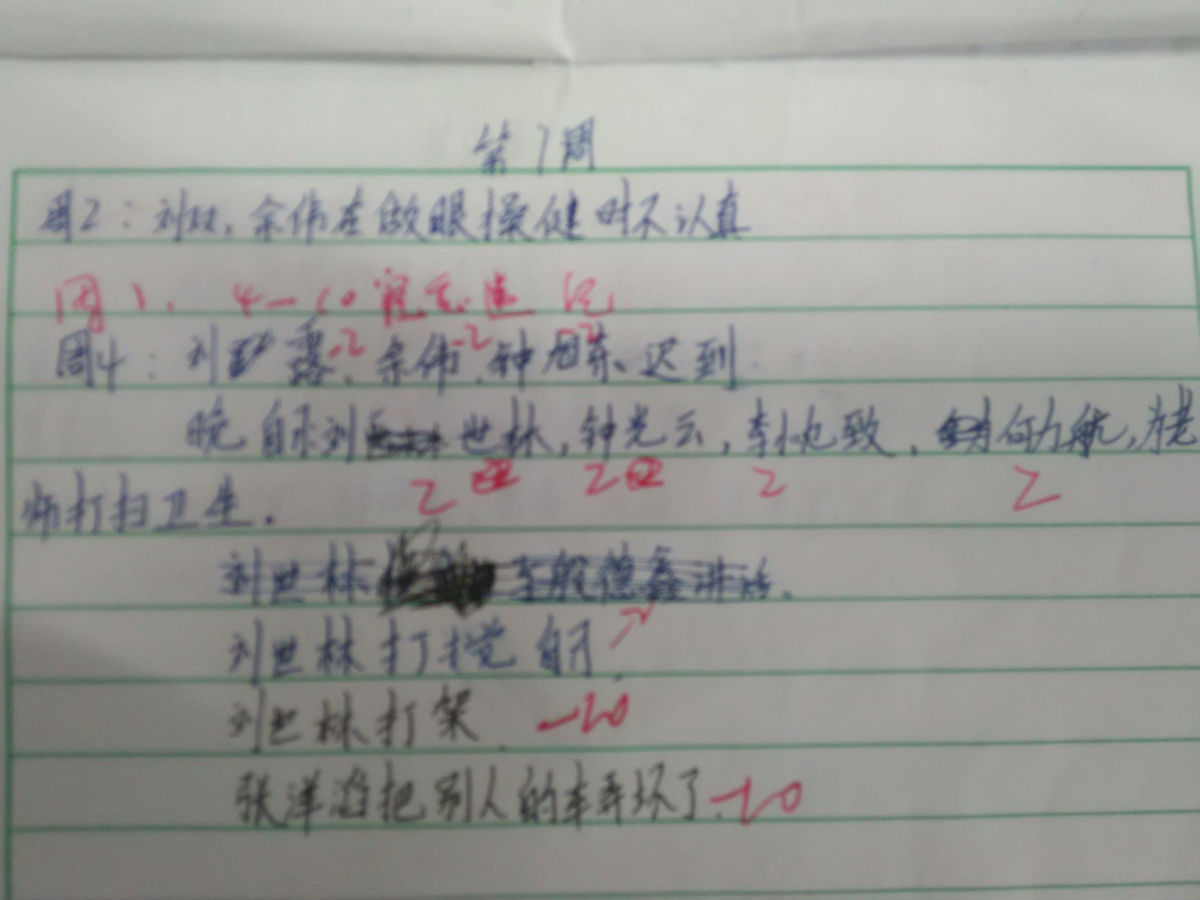 第7周
周2：刘 ，余伟在做眼操健时不认真
周 4-10
周4：刘 露-2、余伟-2、钟旭东-2、迟到
晚自习刘 世林，钟光云，李 致、 何力航，为老
2 2 2 2
师打扫卫生。
刘世林 德鑫讲话。
刘世林打扰 自习.
刘世林打架 -20
张洋 把别人的车弄坏了-10